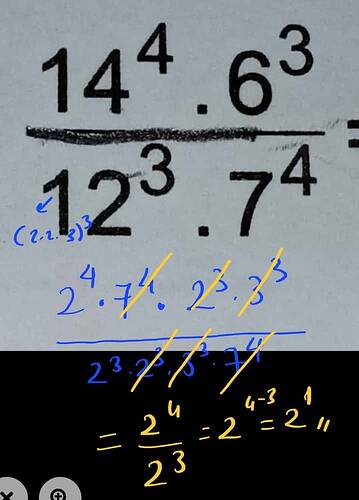 14⁴ . 6³ =
12³ . 7⁴
(2.2.3)³
2⁴ . 7⁴ . 2³ . 3³
2³ . 2³ . 3³ . 7⁴
= 2⁴ / 2³ = 2⁴⁻³ = 2¹ //